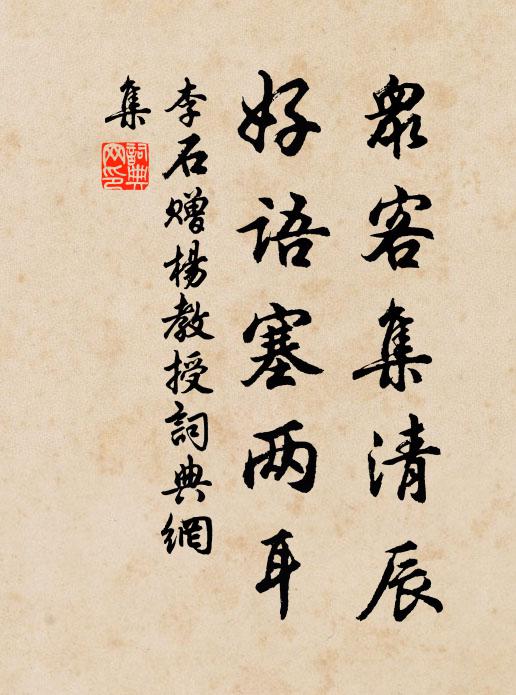 衆客集清辰
好語塞两耳
李石贈楊教授詞典網
集
詞典
网印